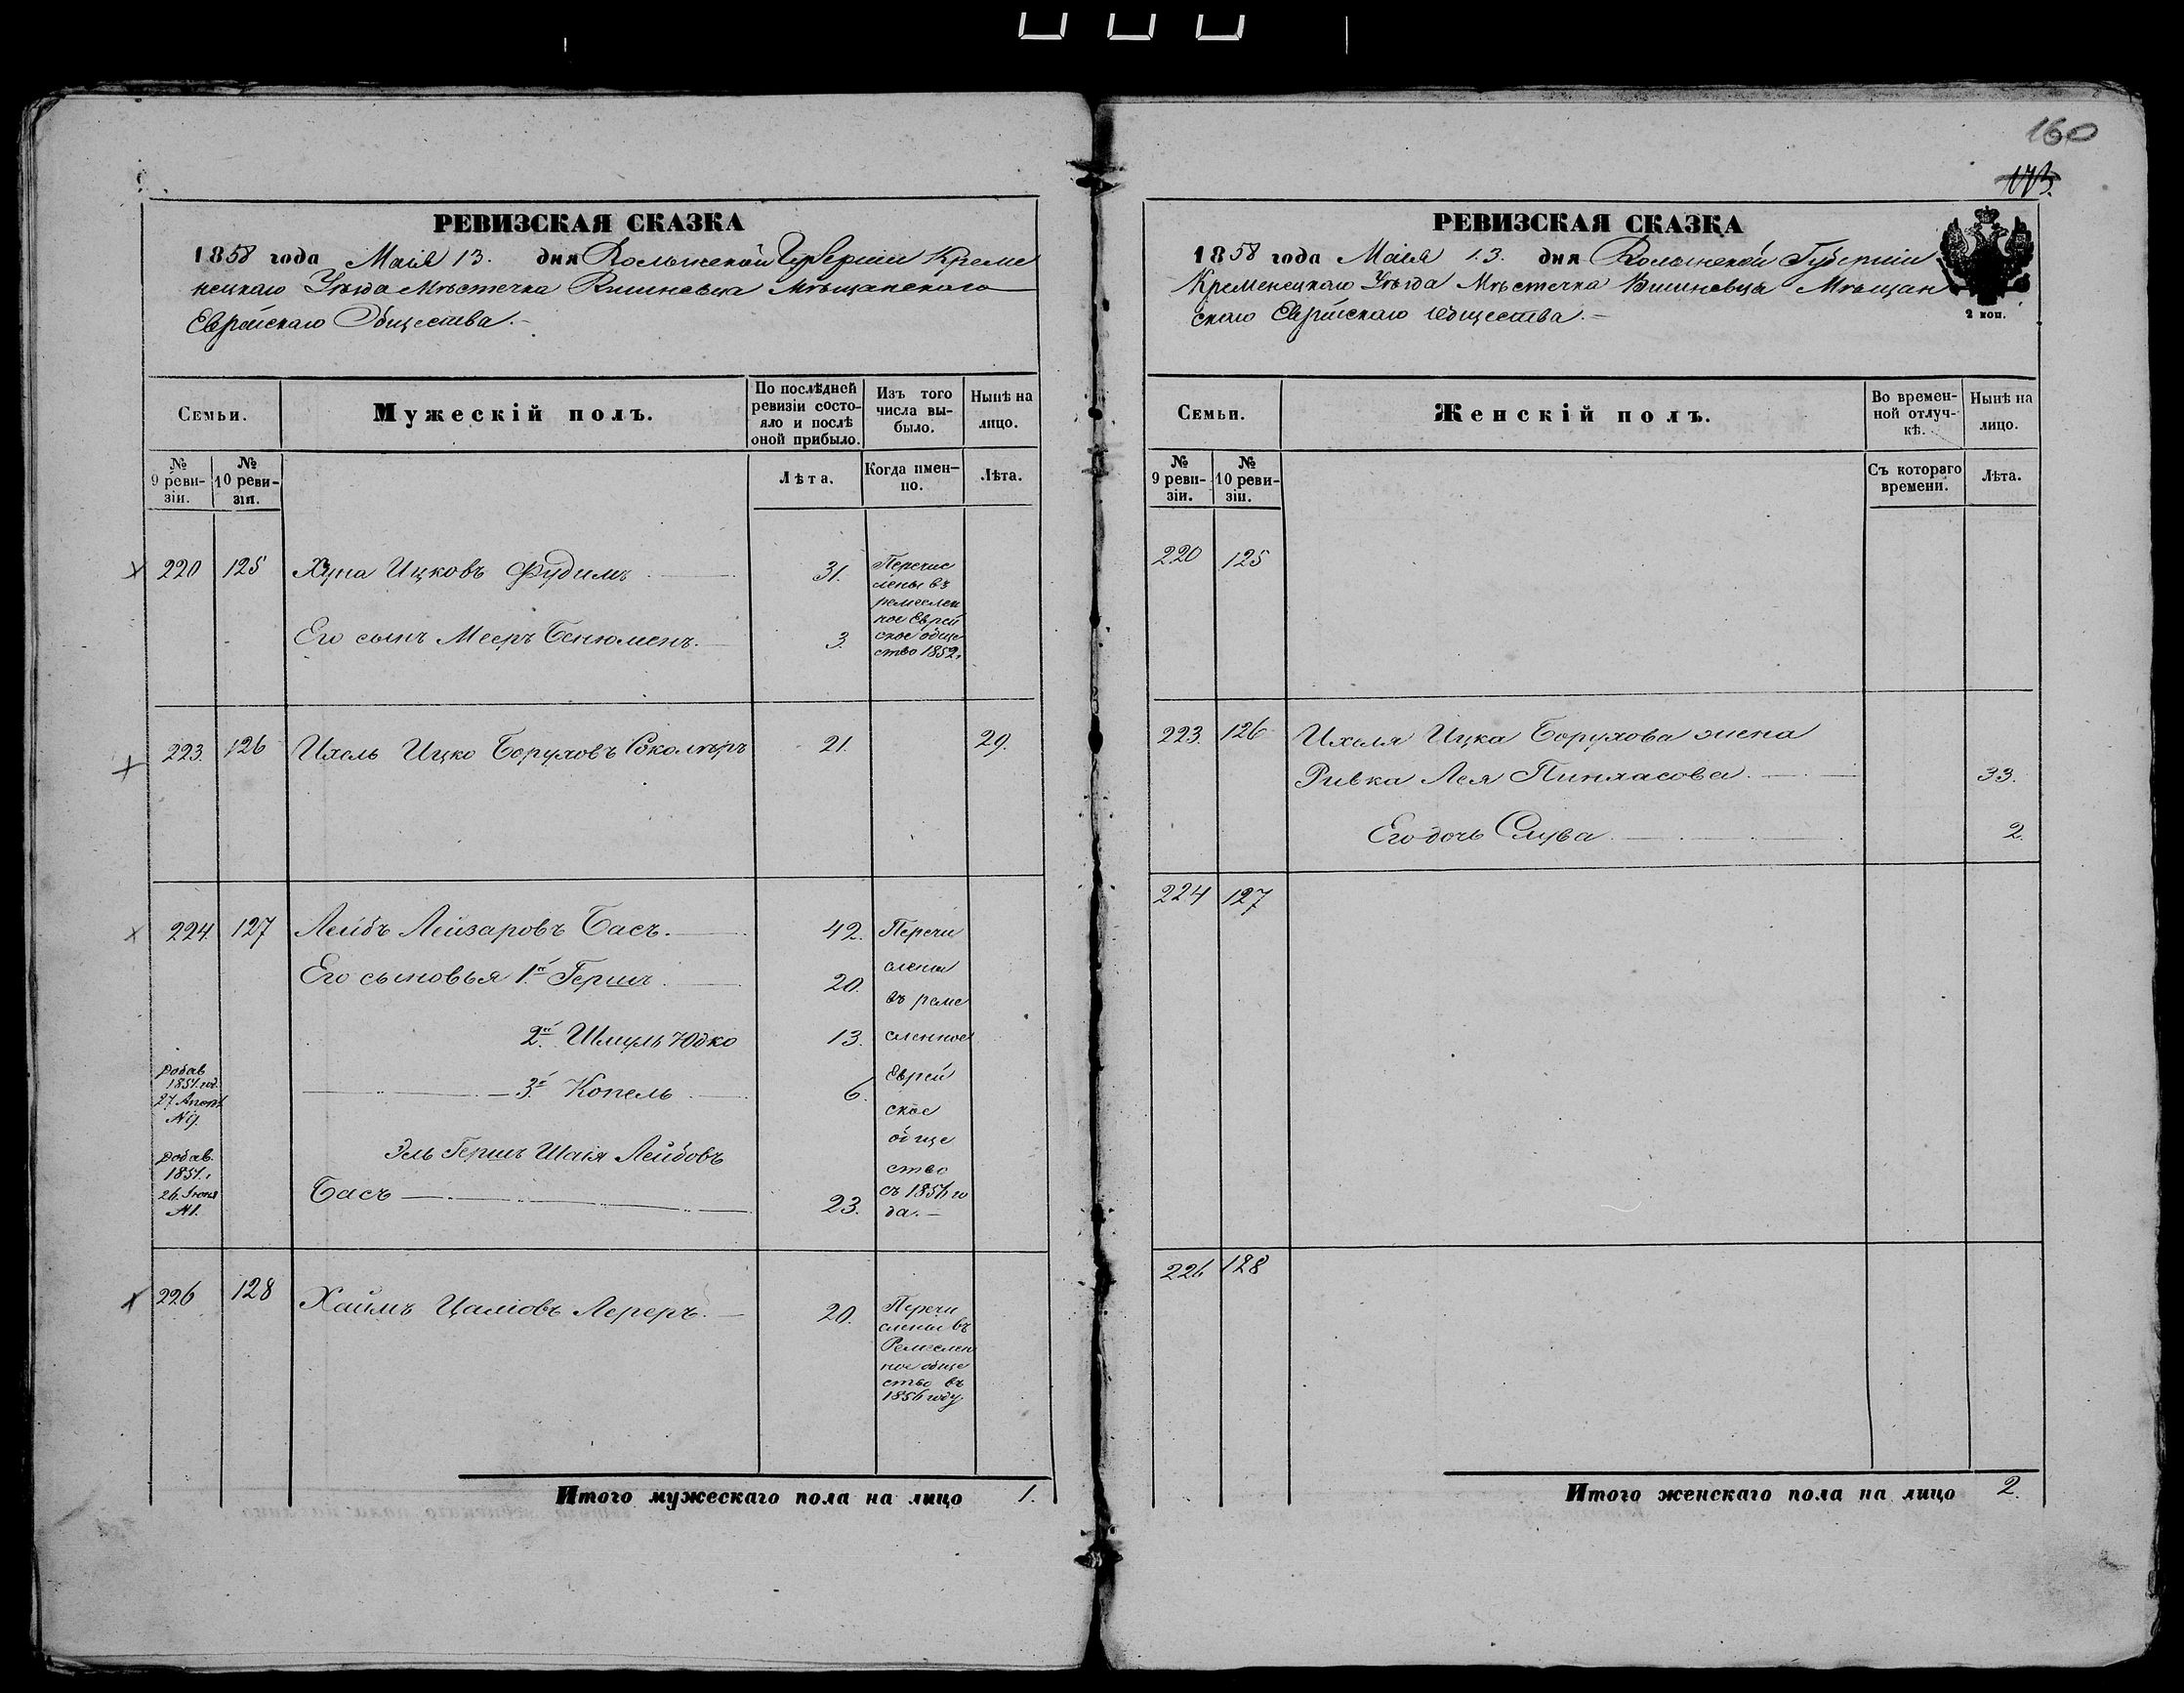 160
173.
РЕВИЗСКАЯ СКАЗКА
1858 года Маія 13. дня Волынской Губерніи Креме
нецкаго Уѣзда Мѣстечка Вишневца Мѣщанскаго
Еврейскаго Общества.
Семьи.
Мужескій полъ.
По послѣдней
ревизіи состо-
яло и послѣ
оной прибыло.
Изъ того
числа вы-
было.
Нынѣ на
лицо.
№
9 реви-
зіи.
№
10 реви-
зіи.
Лѣта.
Когда имен-
но.
Лѣта.
220 125 Хуна Ицковъ Фудимъ 31.
Его сынъ Мееръ Бенюменъ. 3.
Перечис
лены въ
ремеслен
ное Еврей
ское обще
ство 1852.
223. 126 Ихель Ицко Боруховъ Соколѣръ 21. 29.
224. 127 Лейбъ Лейзаровъ Басъ. 42.
Его сыновья 1й Гершъ. 20.
2й Шмуль Юдко 13.
3й Копель 6.
Эль Гершъ Шаія Лейбовъ
Басъ 23.
добав
1851. год.
№ 9.
добав.
1851.
26.
№ 1.
Перечи
слены
въ реме
сленное
Еврей
ское
обще
ство
съ 1856 го
да.
226 128 Хаимъ Цаліовъ Лереръ. 20.
Перечи
слены въ
Ремеслен
ное обще
ство въ
1856 году
Итого мужескаго пола на лицо 1.
РЕВИЗСКАЯ СКАЗКА
1858 года Маія 13. дня Волынской Губерніи
Кременецкаго Уѣзда Мѣстечка Вишневца Мѣщан
скаго Еврейскаго Общества.
2 коп.
Семьи.
Женскій полъ.
Во времен-
ной отлуч-
кѣ.
Нынѣ на
лицо.
№
9 реви-
зіи.
№
10 реви-
зіи.
Съ котораго
времени.
Лѣта.
220 125
223. 126 Ихеля Ицка Борухова жена
Ривка Лея Пинхасова 33.
Его дочь Слува 2.
224 127
226 128
Итого женскаго пола на лицо 2.